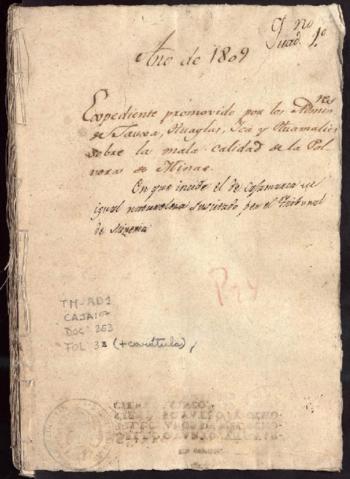 Quad. 1º
Año de 1809
Expediente promovido por los Admin.res
de Tauxa, Huaylas, Ica y Huamalies
sobre la mala calidad de la Pol-
vora de Minas.
En que incide el de Caxamarca de
igual naturaleza suscitado por el Tribunal
de Mineria
TM-AD1
CAJA
DOC 253
FOL 32 (+carátula)